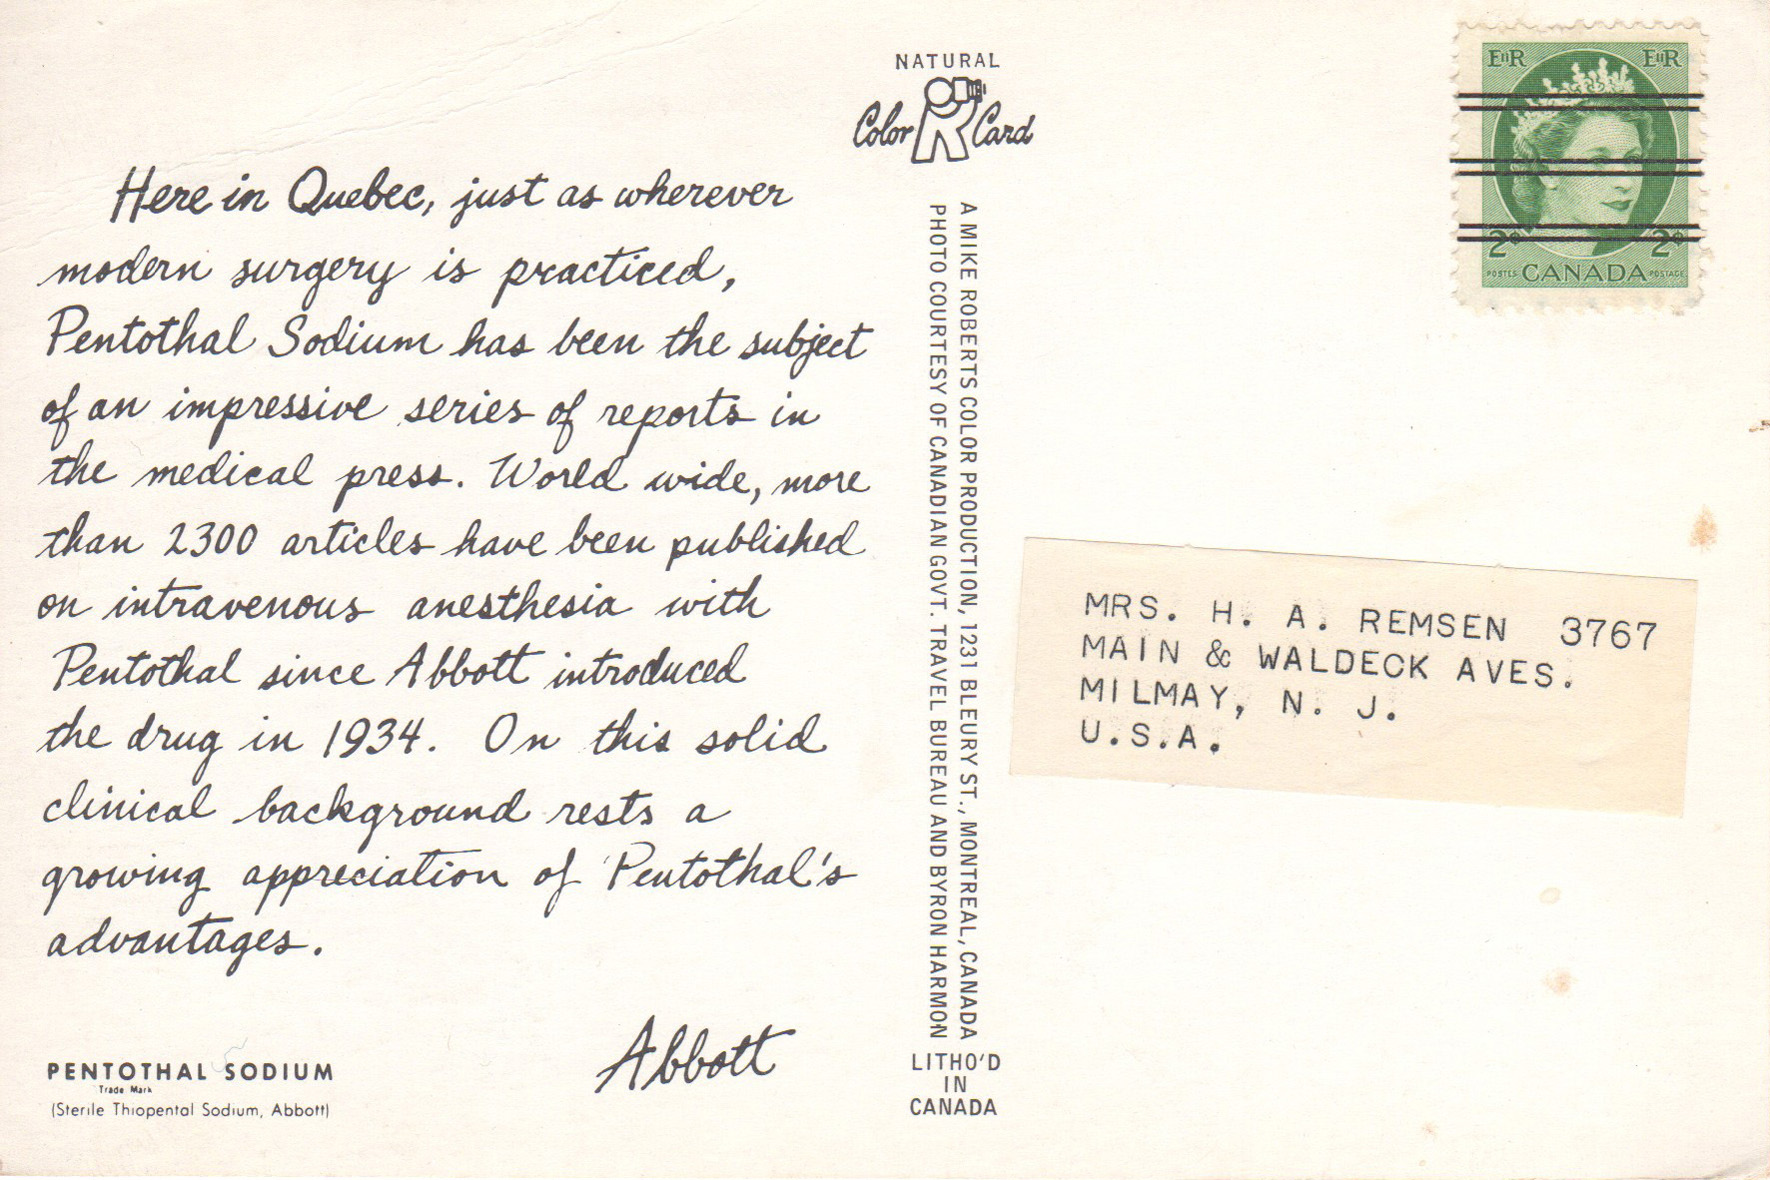 Here in Quebec, just as wherever
modern surgery is practiced,
Pentothal Sodium has been the subject
of an impressive series of reports in
the medical press. World wide, more
than 2300 articles have been published
on intravenous anesthesia with
Pentothal since Abbott introduced
the drug in 1934. On this solid
clinical background rests a
growing appreciation of Pentothal's
advantages.
Abbott
PENTOTHAL SODIUM
Trade Mark
(Sterile Thiopental Sodium, Abbott)
NATURAL
Color R Card
A MIKE ROBERTS COLOR PRODUCTION, 1231 BLEURY ST., MONTREAL, CANADA
PHOTO COURTESY OF CANADIAN GOVT. TRAVEL BUREAU AND BYRON HARMON
LITHO'D
IN
CANADA
EIIR EIIR
2¢ 2¢
POSTES CANADA POSTAGE
MRS. H. A. REMSEN 3767
MAIN & WALDECK AVES.
MILMAY, N. J.
U.S.A.